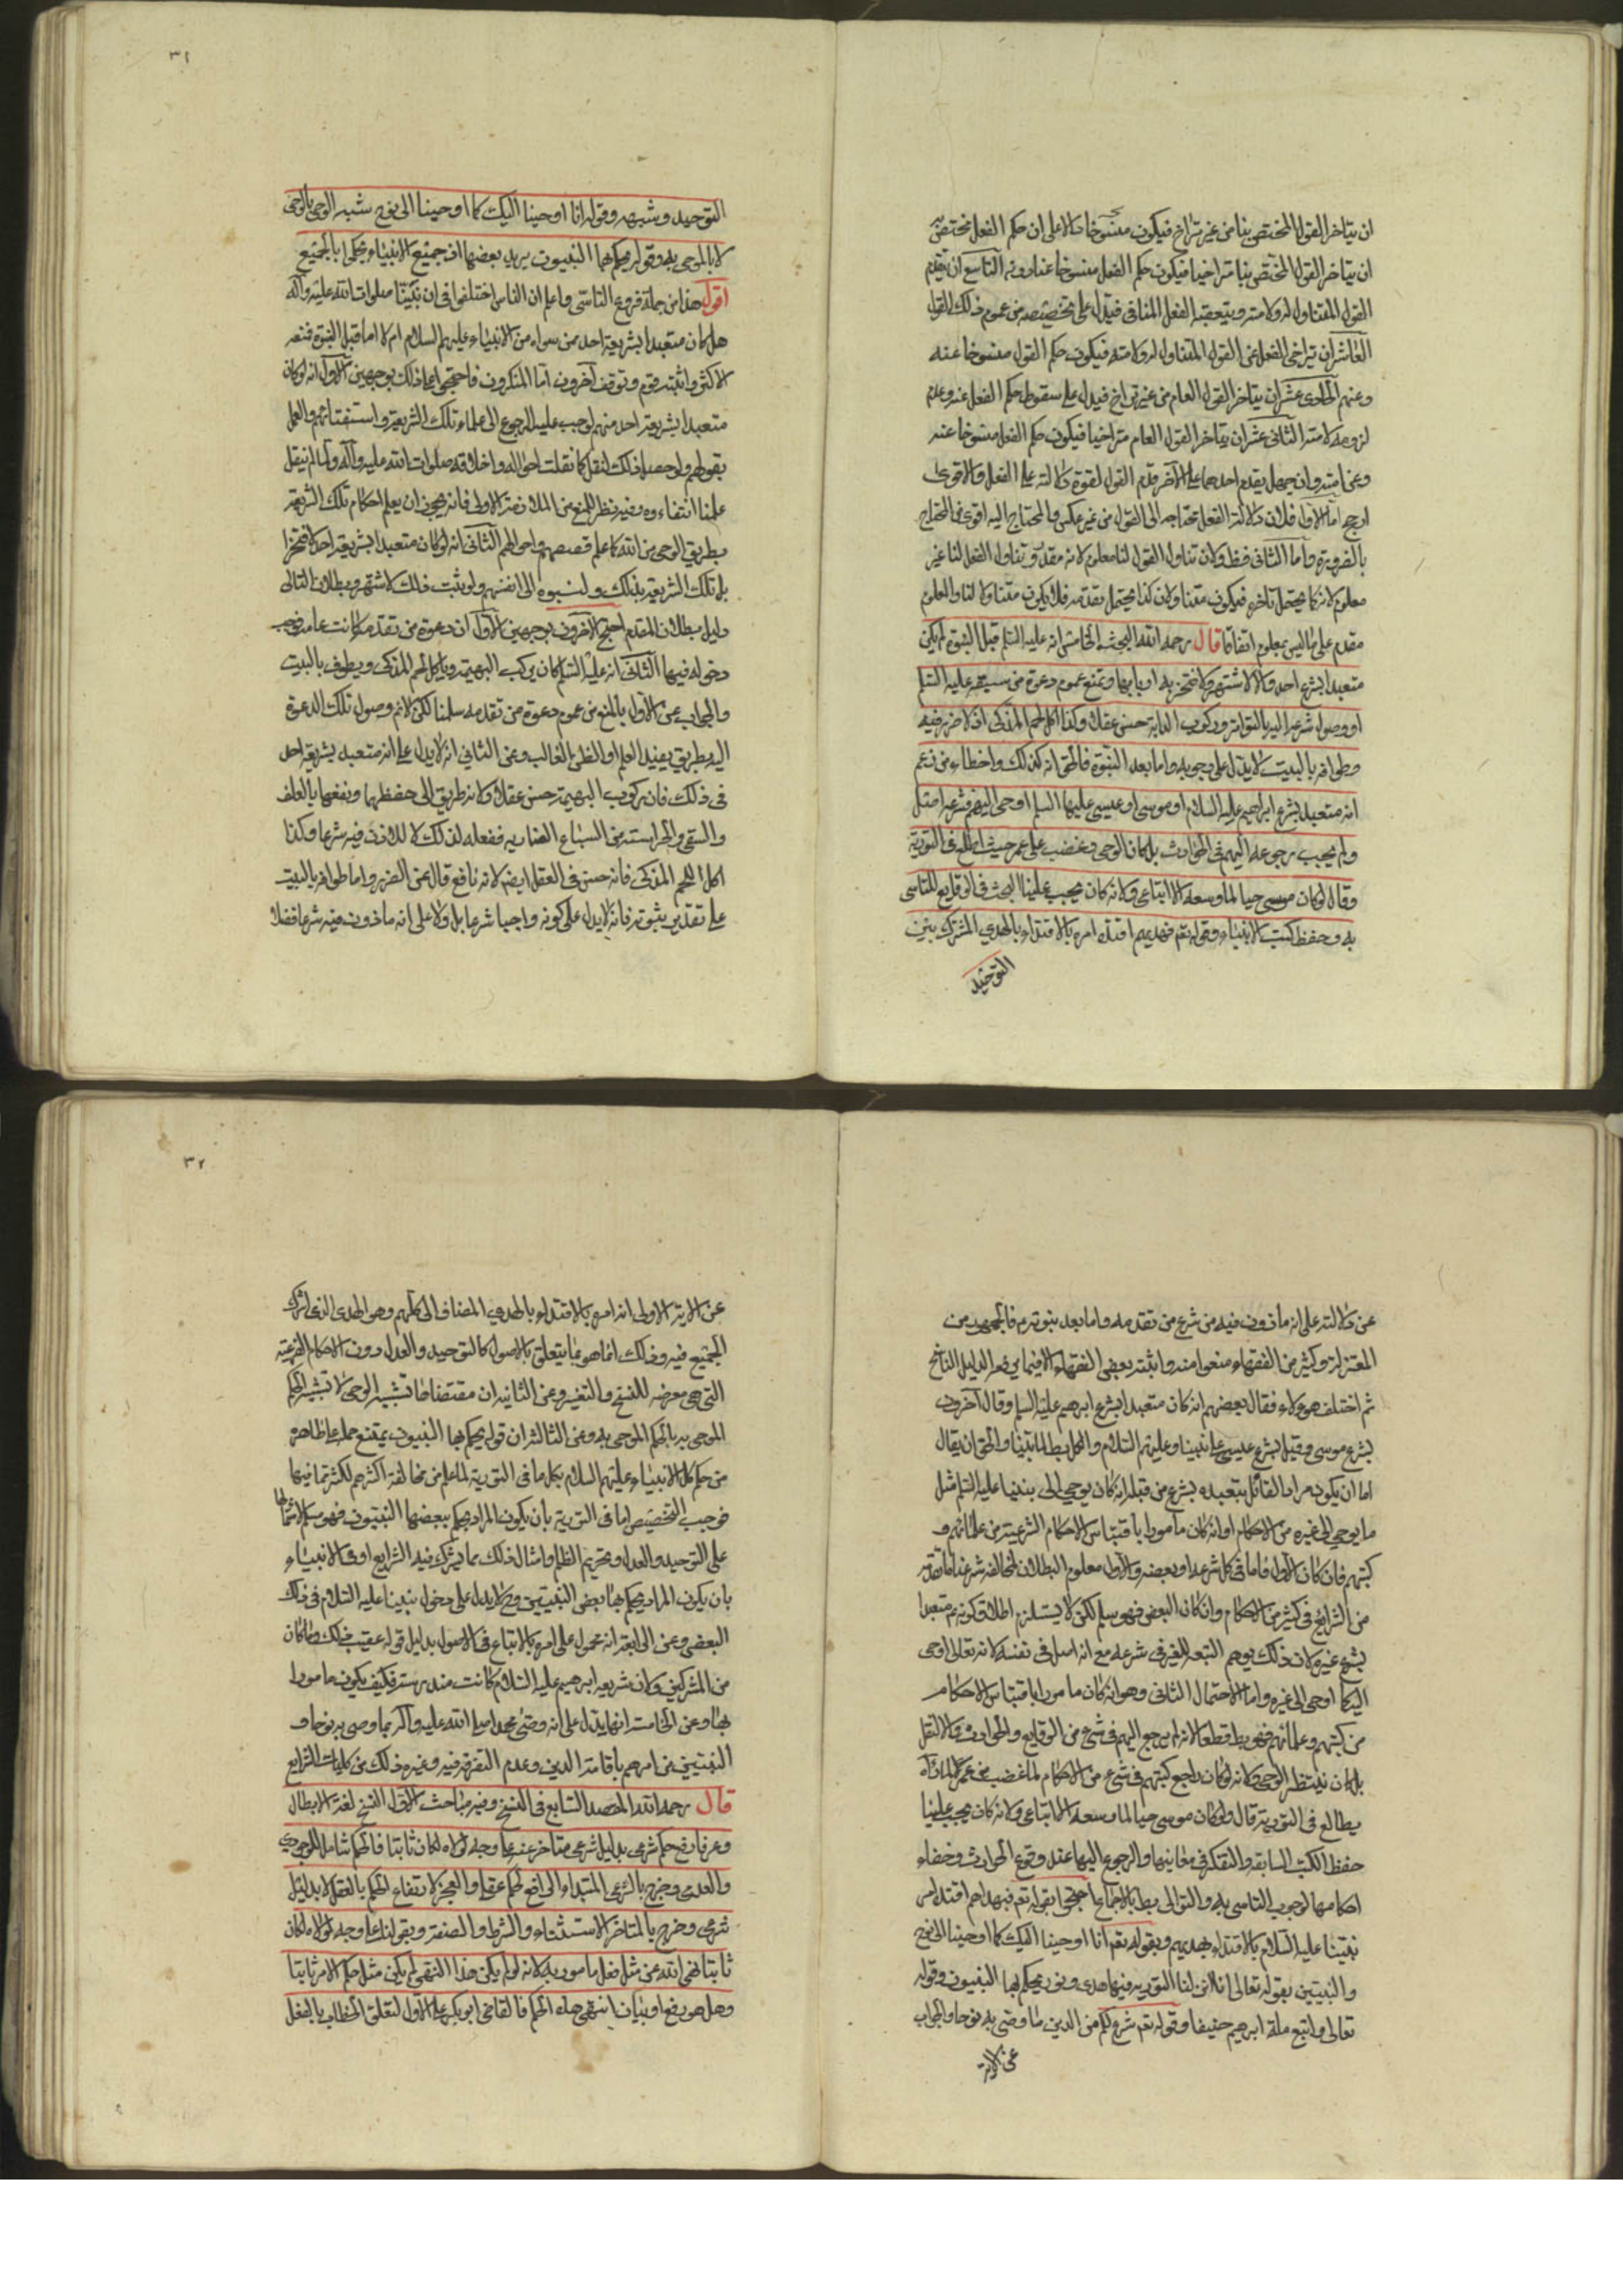 ان يتاخر القول المختص بنا من غير تراخ فيكون منسوخا كالاعلى ان حكم الفعل مختص به
ان يتاخر القول المختص بنا متراخيا فيكون حكم الفعل منسوخا عنا دونه التاسع ان يتقدم
القول المتناول له ولامته ويتعقبه الفعل المنافى فيدل على تخصيصه من عموم ذلك القول
العاشر ان يتراخى الفعل عن القول المتناول له ولامته فيكون حكم القول منسوخا عنه
وعنهم الحادى عشر ان يتاخر القول العام من غير تراخ فيدل على سقوط حكم الفعل عنه وعدم
لزومه لامته الثانى عشر ان يتاخر القول العام متراخيا فيكون حكم الفعل منسوخا عنه
وعن امته وان جهل تقدم احدهما على الآخر قدم القول لقوة دلالته على الفعل والاقوى
ارجح اما الاول فلان دلالة الفعل تحتاج الى القول من غير عكس والمحتاج اليه اقوى من المحتاج
بالضرورة واما الثانى فظ ولان تناول القول لنا معلوم لانه مقدر وتناول الفعل لنا غير
معلوم لانه كما يحتمل تاخره فيكون متناولا كذا يحتمل تقدمه فلا يكون متناولا لنا والمعلوم
مقدم على ما ليس بمعلوم اتفاقا قال رحمه الله البحث الخامس انه عليه السلم قبل النبوة لم يكن
متعبدا بشرع احد والا لاشتهر ولافتخر به اربابها ونمنع عموم دعوة من سبقه عليه السلم
او وصول شرعه اليه بالتواتر وركوب الدابة حسن عقلا وكذا اكل لحم المذكى اذ لا ضرر فيه
وطوافه بالبيت لا يدل على وجوبه واما بعد النبوة فالحق انه كذلك واخطاء من زعم
انه متعبد بشرع ابراهيم عليه السلام او موسى او عيسى عليهما السلم اوحى اليه مثل شرعه امتثل
ولم يجب رجوعه اليهم فى الحوادث بل كان الوحى وغضب على عمر حيث اطلع فى التورية
وقال لو كان موسى حيا لما وسعه الا اتباعى ولانه كان يجب علينا البحث فى الوقايع للتاسى
به وحفظ كتب الانبياء وقوله تعم فبهديهم اقتده امره بالاقتداء بالهدى المشترك بينهم
التوحيد
٣١
التوحيد وشبهه وقوله انا اوحينا اليك كما اوحينا الى نوح شبه الوحى بالوحى
لا بالموحى به وقوله يحكم بها النبيون يريد بعضها اذ جميع الانبياء لم يحكموا بالجميع
اقول هذا من جملة فروع التاسى واعلم ان الناس اختلفوا فى ان نبينا صلوات الله عليه وآله
هل كان متعبدا بشريعة احد ممن سواه من الانبياء عليهم السلام ام لا اما قبل النبوة فمنعه
الاكثر واثبته قوم وتوقف آخرون اما المنكرون فاحتجوا على ذلك بوجهين الاول انه لو كان
متعبدا بشريعة احد منهم لوجب عليه الرجوع الى علماء تلك الشريعة واستفتائهم والعمل
بقولهم ولو حصل ذلك لنقل كما نقلت احواله واخلاقه صلوات الله عليه وآله ولما لم ينقل
علمنا انتفاءه وفيه نظر للمنع من الملازمة الاولى فانه يجوز ان يعلم احكام تلك الشريعة
بطريق الوحى من الله كما علم قصصهم واحوالهم الثانى انه لو كان متعبدا بشريعة احد لافتخر
باتلك الشريعة بذلك ولنسبوه الى انفسهم ولو ثبت ذلك لاشتهر وبطلان التالى
دليل بطلان المقدم احتج الآخرون بوجهين الاول ان دعوة من تقدمه كانت عامة فوجب
دخوله فيها الثانى انه عليه السلم كان يركب البهيمة وياكل لحم المذكى ويطوف بالبيت
والجواب عن الاول بالمنع من عموم دعوة من تقدمه سلمنا لكن لا نم وصول تلك الدعوة
اليه بطريق يفيد العلم او الظن الغالب وعن الثانى انه لا يدل على انه متعبد بشريعة احد
فى ذلك فان ركوب البهيمة حسن عقلا لانه طريق الى حفظها ونفعها بالعلف
والسقى والحراسة من السباع الضاربة ففعله لذلك لا للاذن فيه شرعا وكذا
اكل اللحم المذكى فانه حسن فى العقل ايضا لانه نافع خال عن الضرر واما طوافه بالبيت
على تقدير ثبوته فانه لا يدل على كونه واجبا شرعا بل ولا على انه ماذون فيه شرعا فضلا
عن دلالته على انه ماذون فيه من شرع من تقدمه واما بعد نبوته فالجمهور من
المعتزلة وكثير من الفقهاء منعوا منه واثبته بعض الفقهاء الا فيما يرفعه الدليل الناسخ
ثم اختلف هؤلاء فقال بعضهم انه كان متعبدا بشرع ابرهيم عليه السلم وقال آخرون
بشرع موسى وقيل بشرع عيسى على نبينا وعليهم السلام والكل بط لما بينا والحق ان يقال
اما ان يكون مراد القائل بتعبده بشرع من قبله انه كان يوحى الى نبينا عليه السلم مثل
ما يوحى الى غيره من الاحكام او انه كان مامورا باقتباس الاحكام الشرعية من علمائهم و
كتبهم فان كان الاول فاما فى كل شرعه او بعضه والاول معلوم البطلان لمخالفة شرعنا ما تقدمه
من الشرايع فى كثير من الاحكام وان كان البعض فهو مسلم لكن لا يستلزم اطلاق كونه متعبدا
بشرع غيره لان ذلك يوهم التبعية للغير فى شرعه مع انه اصل فى نفسه لانه تعالى اوحى
اليه كما اوحى الى غيره واما الاحتمال الثانى وهو انه كان مامورا باقتباس الاحكام
من كتبهم وعلمائهم فهو بط قطعا لانه لم يرجع اليهم فى شئ من الوقايع والحوادث والا لنقل
بل كان ينتظر الوحى ولانه لو كان راجع كتبهم فى شئ من الاحكام لما غضب من عمر لما رآه
يطالع فى التورية قال ولو كان موسى حيا لما وسعه الا اتباعى ولانه كان يجب علينا
حفظ الكتب السابقة والتفكر فى معانيها والرجوع اليها عند وقوع الحوادث وخفاء
احكامها لوجوب التاسى به والتوالى بط بالاجماع احتجوا بقوله تعم فبهداهم اقتده امر
نبينا عليه السلام بالاقتداء بهديهم وبقوله تعم انا اوحينا اليك كما اوحينا الى نوح
والنبيين بقوله تعالى انا انزلنا التورية فيها هدى ونور يحكم بها النبيون وقوله
تعالى واتبع ملة ابرهيم حنيفا وقوله تعم شرع لكم من الدين ما وصى به نوحا والجواب
عن الاية
٣٢
عن الاية الاولى انه امره بالاقتداء بالهدى المضاف الى كلهم وهو الهدى الذى اشترك
الجميع فيه وذلك انما هو بما يتعلق بالاصول كالتوحيد والعدل دون الاحكام الفرعية
التى هى معرضة للنسخ والتغير وعن الثانية ان مقتضاها تشبيه الوحى لا تشبيه الحكم
الموحى به بالحكم الموحى به وعن الثالثة ان قوله يحكم بها النبيون يمتنع حمله على ظاهره
من حكم كل الانبياء عليهم السلام بكل ما فى التورية لما علم من مخالفة اكثرهم لكثير مما فيها
فوجب التخصيص اما فى التورية بان يكون المراد يحكم ببعضها النبيون فهو مسلم لاشتمالها
على التوحيد والعدل وتحريم الظلم وامثال ذلك مما يشترك فيه الشرايع او فى الانبياء
بان يكون المراد يحكم بها بعض النبيين وح لا يدل على دخول نبينا عليه السلام فى ذلك
البعض وعن الرابعة انه محمول على امره بالاتباع فى الاصول بدليل قوله عقيب ذلك وما كان
من المشركين ولان شريعة ابرهيم عليه السلام كانت مندرسة فكيف يكون مامورا
بها وعن الخامسة انها يدل على انه وصى محمد صلى الله عليه وآله بما وصى به نوحا و
النبيين من امرهم باقامة الدين وعدم التفرقة فيه وغيره ذلك من كليات الشرايع
قال رحمه الله المقصد السابع فى النسخ وفيه مباحث الاول النسخ لغة الابطال
وعرفا رفع حكم شرعى بدليل شرعى متاخر عنه على وجه لولاه لكان ثابتا فالحكم شامل للوجودى
والعدمى وخرج بالشرعى المبتداء الرافع لحكم عقلى والعجز لارتفاع الحكم بالعقل لا بدليل
شرعى وخرج بالمتاخر الاستثناء والشرط والصفة وبقولنا على وجه لولاه لكان
ثابتا نهى الله عن مثل فعل مامور به لانه لو لم يكن هذا النهى لم يكن مثل حكم الامر ثابتا
وهل هو رفع او بيان انتهى هذا الحكم فالقاضى ابو بكر على الاول لتعلق الخطاب بالفعل